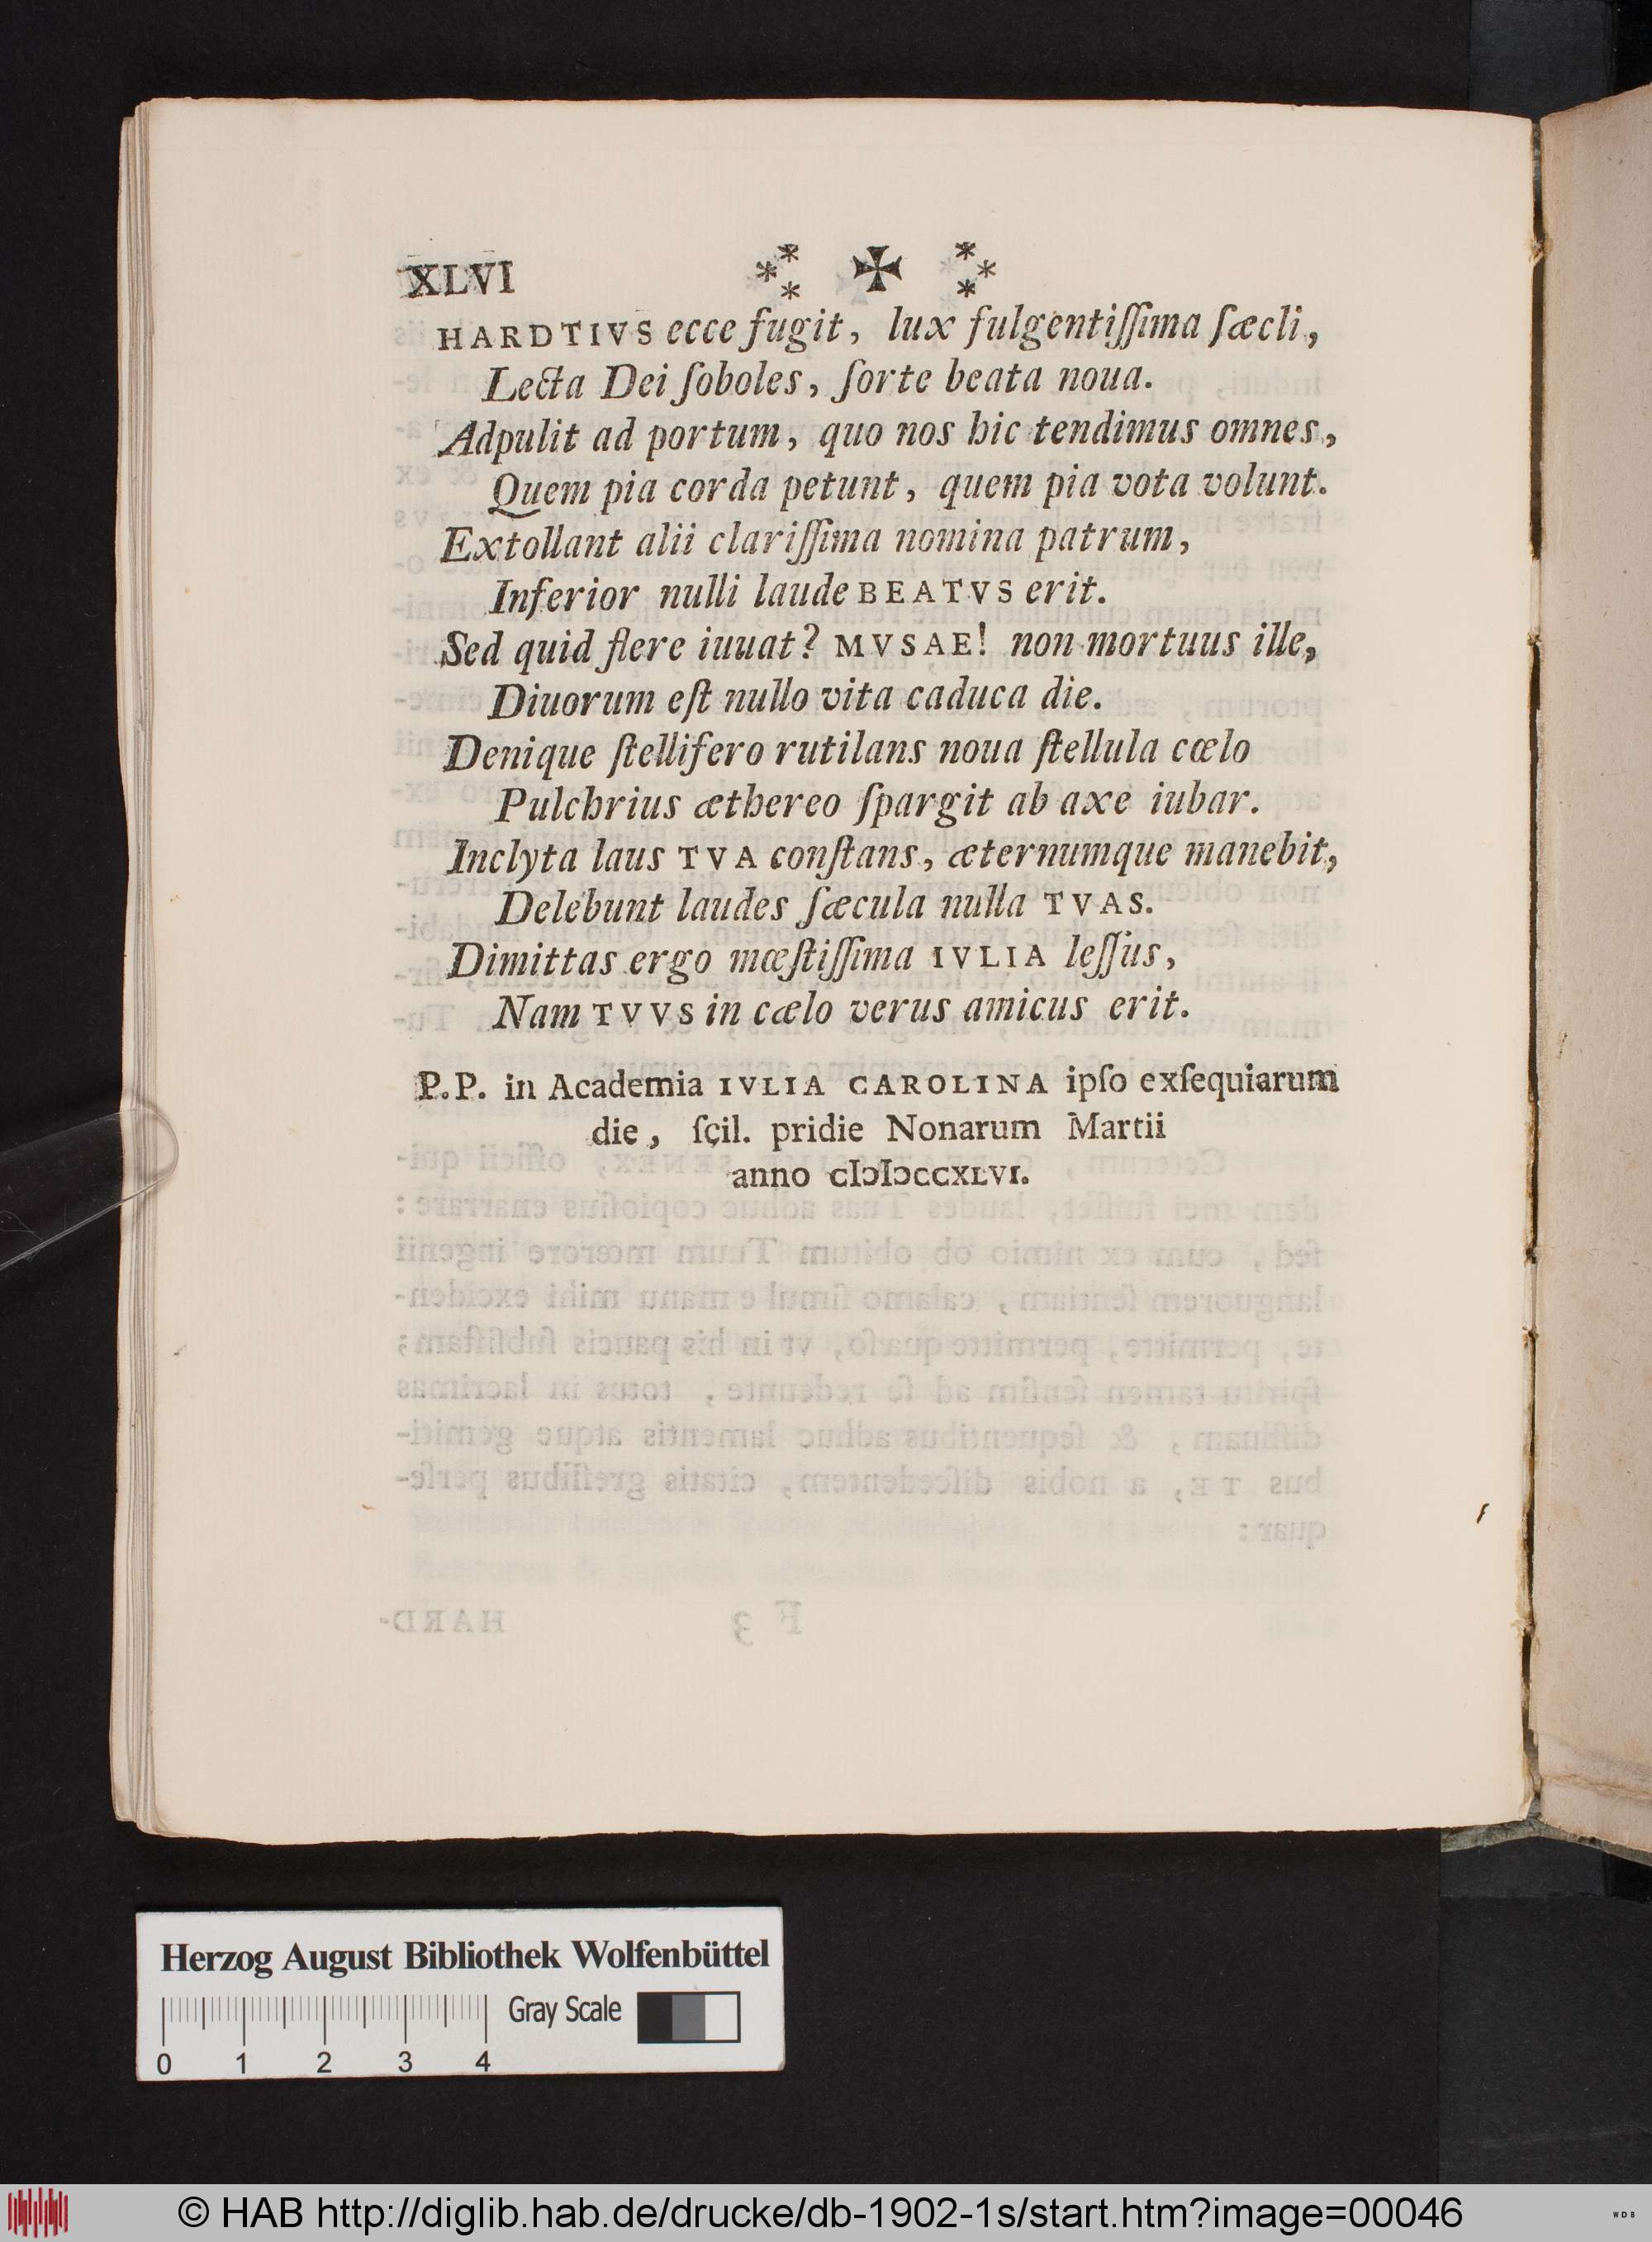 XLVI
HARDTIVS ecce fugit, lux fulgentiſſima ſæcli,
Lecta Dei ſoboles, ſorte beata noua.
Adpulit ad portum, quo nos hic tendimus omnes,
Quem pia corda petunt, quem pia vota volunt.
Extollant alii clariſſima nomina patrum,
Inferior nulli laude BEATVS erit.
Sed quid flere iuuat? MVSAE! non mortuus ille,
Diuorum eſt nullo vita caduca die.
Denique ſtellifero rutilans noua ſtellula cœlo
Pulchrius æthereo ſpargit ab axe iubar.
Inclyta laus TVA conſtans, æternumque manebit,
Delebunt laudes ſæcula nulla TVAS.
Dimittas ergo mœſtiſſima IVLIA leſſus,
Nam TVVS in cælo verus amicus erit.
P.P. in Academia IVLIA CAROLINA ipſo exſequiarum
die, ſçil. pridie Nonarum Martii
anno cIɔIɔccxlvi.
Herzog August Bibliothek Wolfenbüttel
Gray Scale
0 1 2 3 4
© HAB http://diglib.hab.de/drucke/db-1902-1s/start.htm?image=00046
WDB